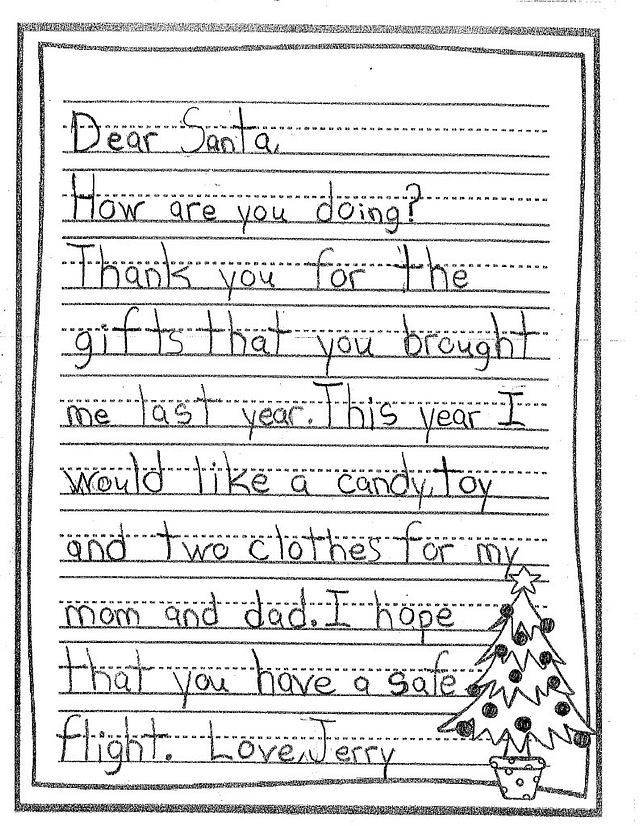 Dear Santa,
How are you doing?
Thank you for the
gifts that you brought
me last year. This year I
would like a candy, toy
and two clothes for my
mom and dad. I hope
that you have a safe
flight. Love, Jerry